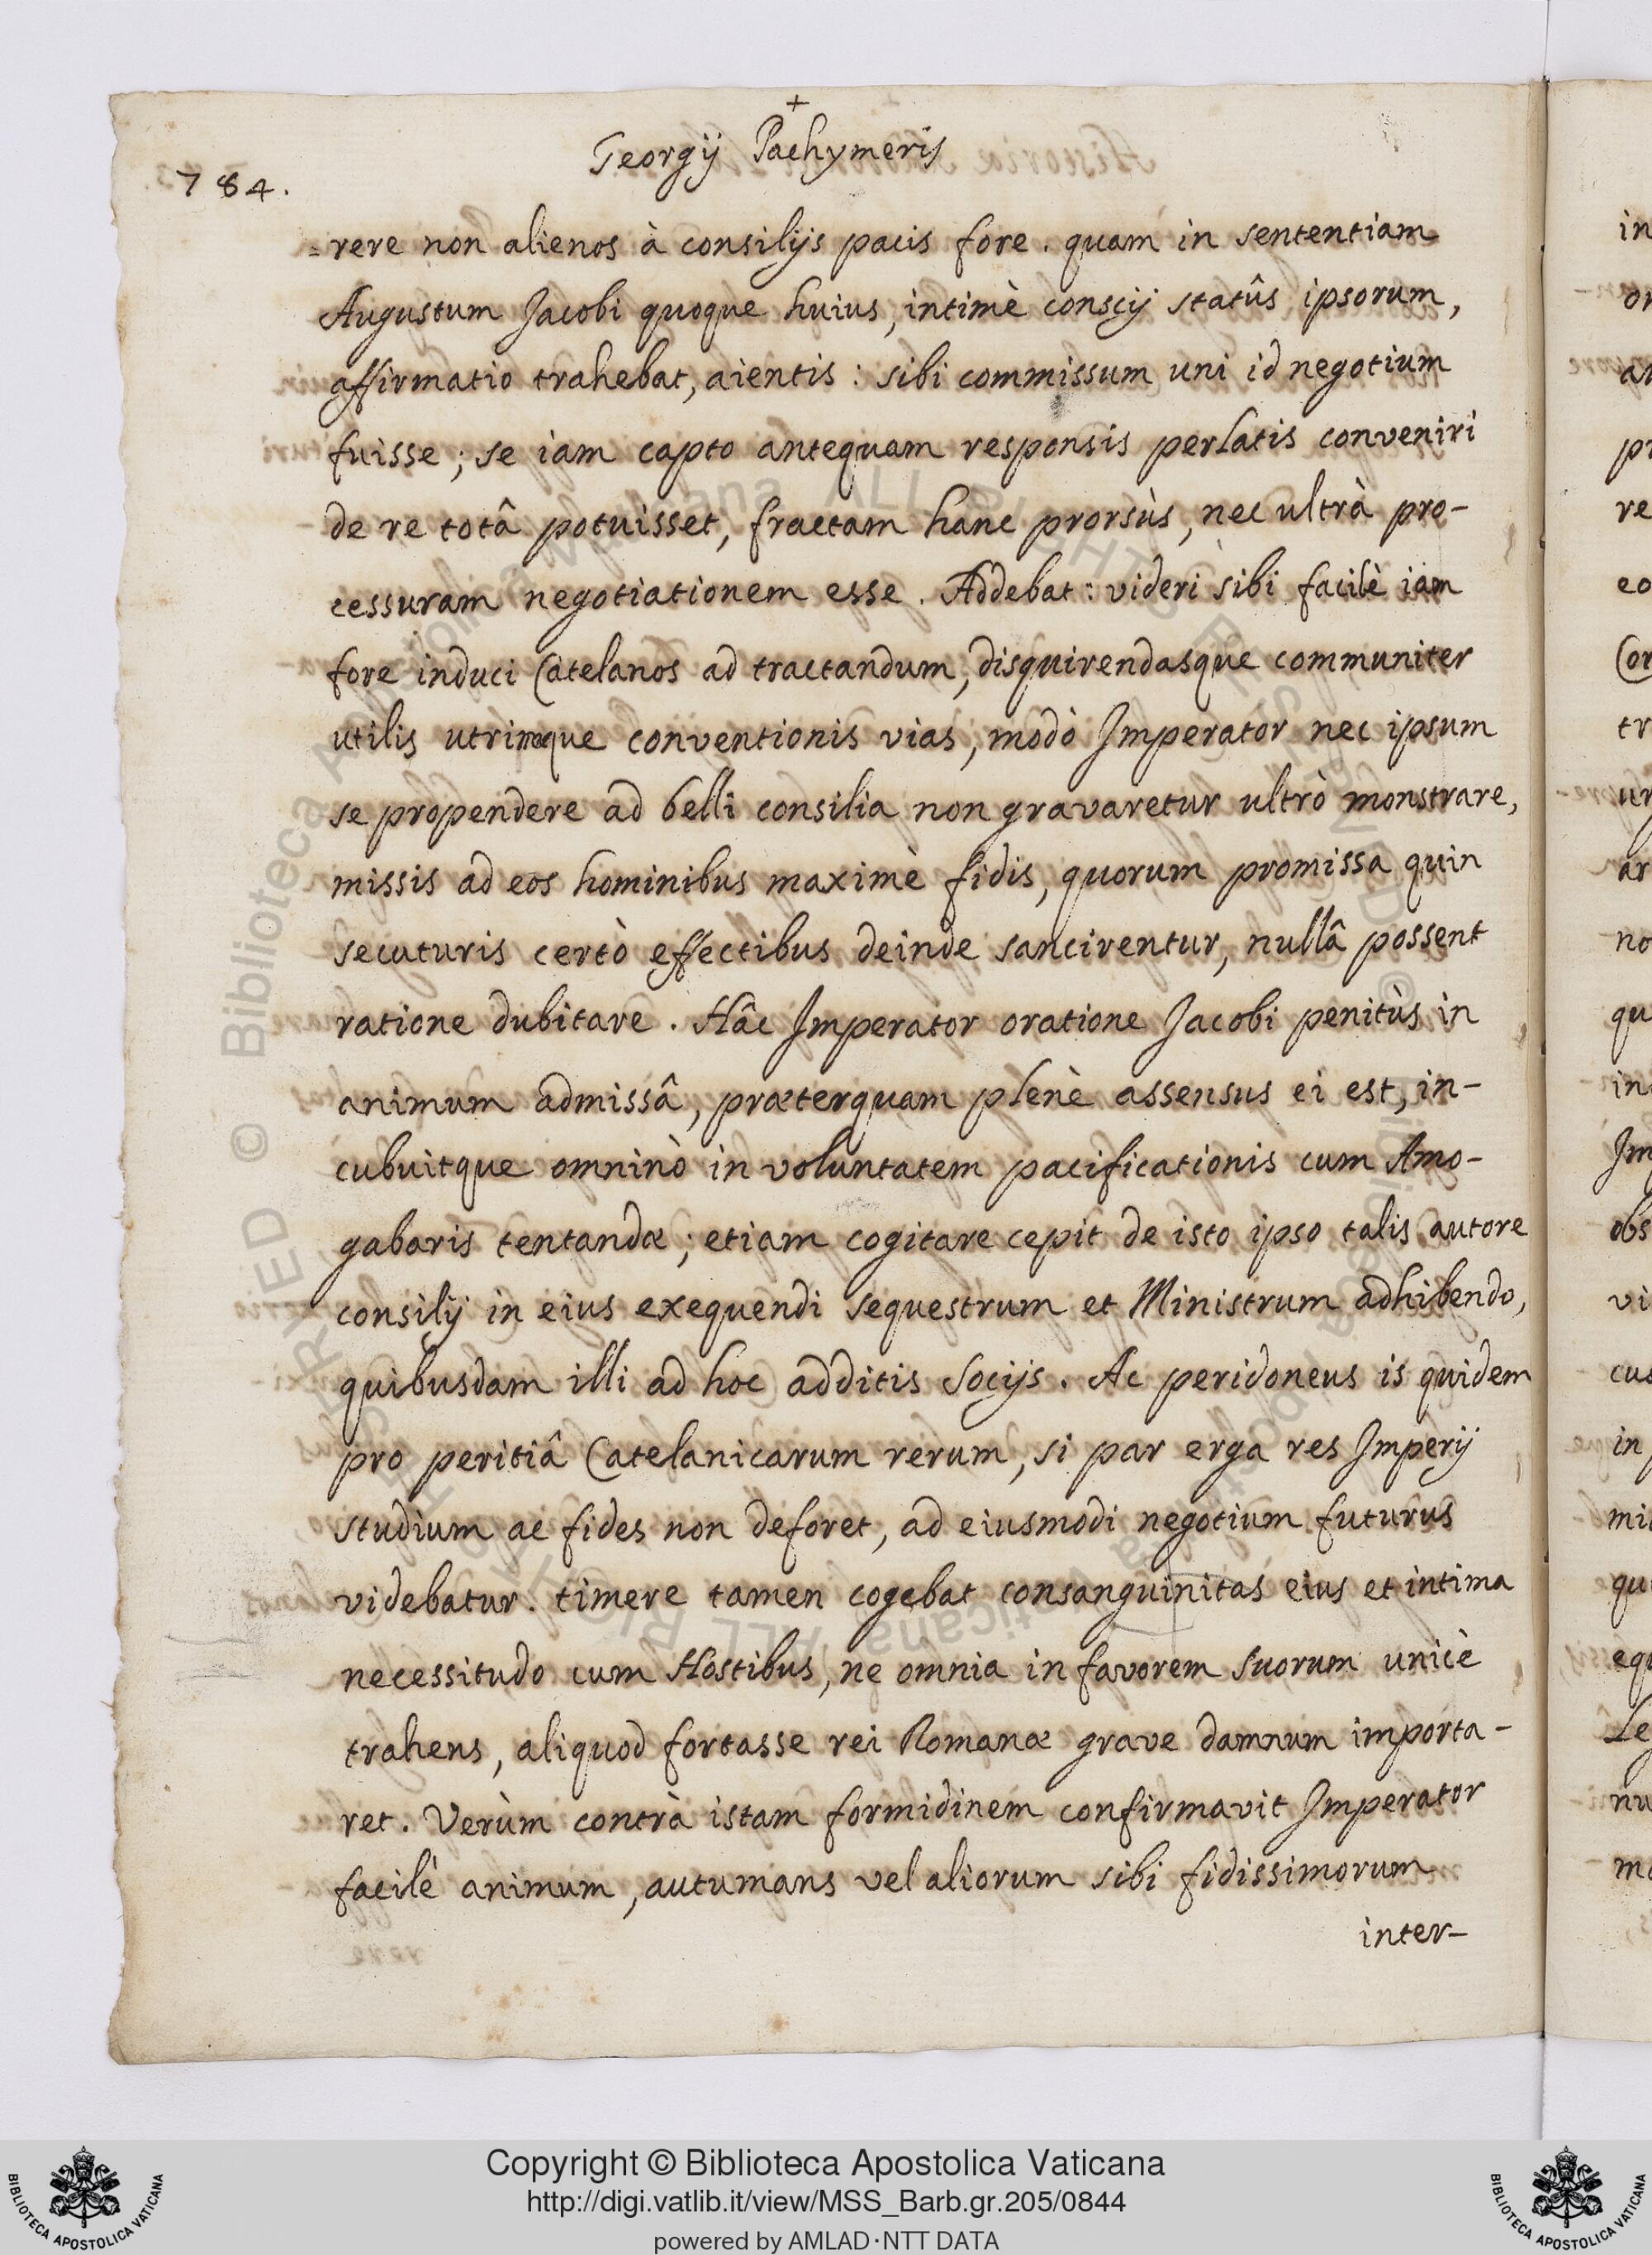 +
Georgij Pachymeris
784.
=rere non alienos à consilijs pacis fore. quam in sententiam
Augustum Jacobi quoque huius, intimè conscij statûs ipsorum,
affirmatio trahebat, aientis: sibi commissum uni id negotium
fuisse; se iam capto antequam responsis perlatis conveniri
de re totâ potuisset, fractam hanc prorsùs, nec ultrà pro-
cessuram negotiationem esse. Addebat: videri sibi facilè iam
fore induci Catelanos ad tractandum, disquirendasque communiter
utilis utrimque conventionis vias, modò Imperator nec ipsum
se propendere ad belli consilia non gravaretur ultrò monstrare,
missis ad eos hominibus maximè fidis, quorum promissa quin
secuturis certò effectibus deinde sancirentur, nullâ possent
ratione dubitare. Hâc Imperator oratione Jacobi penitùs in
animum admissâ, præterquam plenè assensus ei est, in-
cubuitque omninò in voluntatem pacificationis cum Amo-
gabaris tentandæ; etiam cogitare cepit de isto ipso talis autore
consilij in eius exequendi sequestrum et Ministrum adhibendo,
quibusdam illi ad hoc additis Socijs. Ac peridoneus is quidem
pro peritiâ Catelanicarum rerum, si par erga res Imperij
studium ac fides non deforet, ad eiusmodi negotium futurus
videbatur. timere tamen cogebat consanguinitas eius et intima
necessitudo cum Hostibus, ne omnia in favorem suorum unicè
trahens, aliquod fortasse rei Romanæ grave damnum importa-
ret. Verùm contrà istam formidinem confirmavit Imperator
facilè animum, autumans vel aliorum sibi fidissimorum
inter-
Copyright © Biblioteca Apostolica Vaticana
http://digi.vatlib.it/view/MSS_Barb.gr.205/0844
powered by AMLAD·NTT DATA
BIBLIOTECA APOSTOLICA VATICANA
BIBLIOTECA APOSTOLICA VATICANA